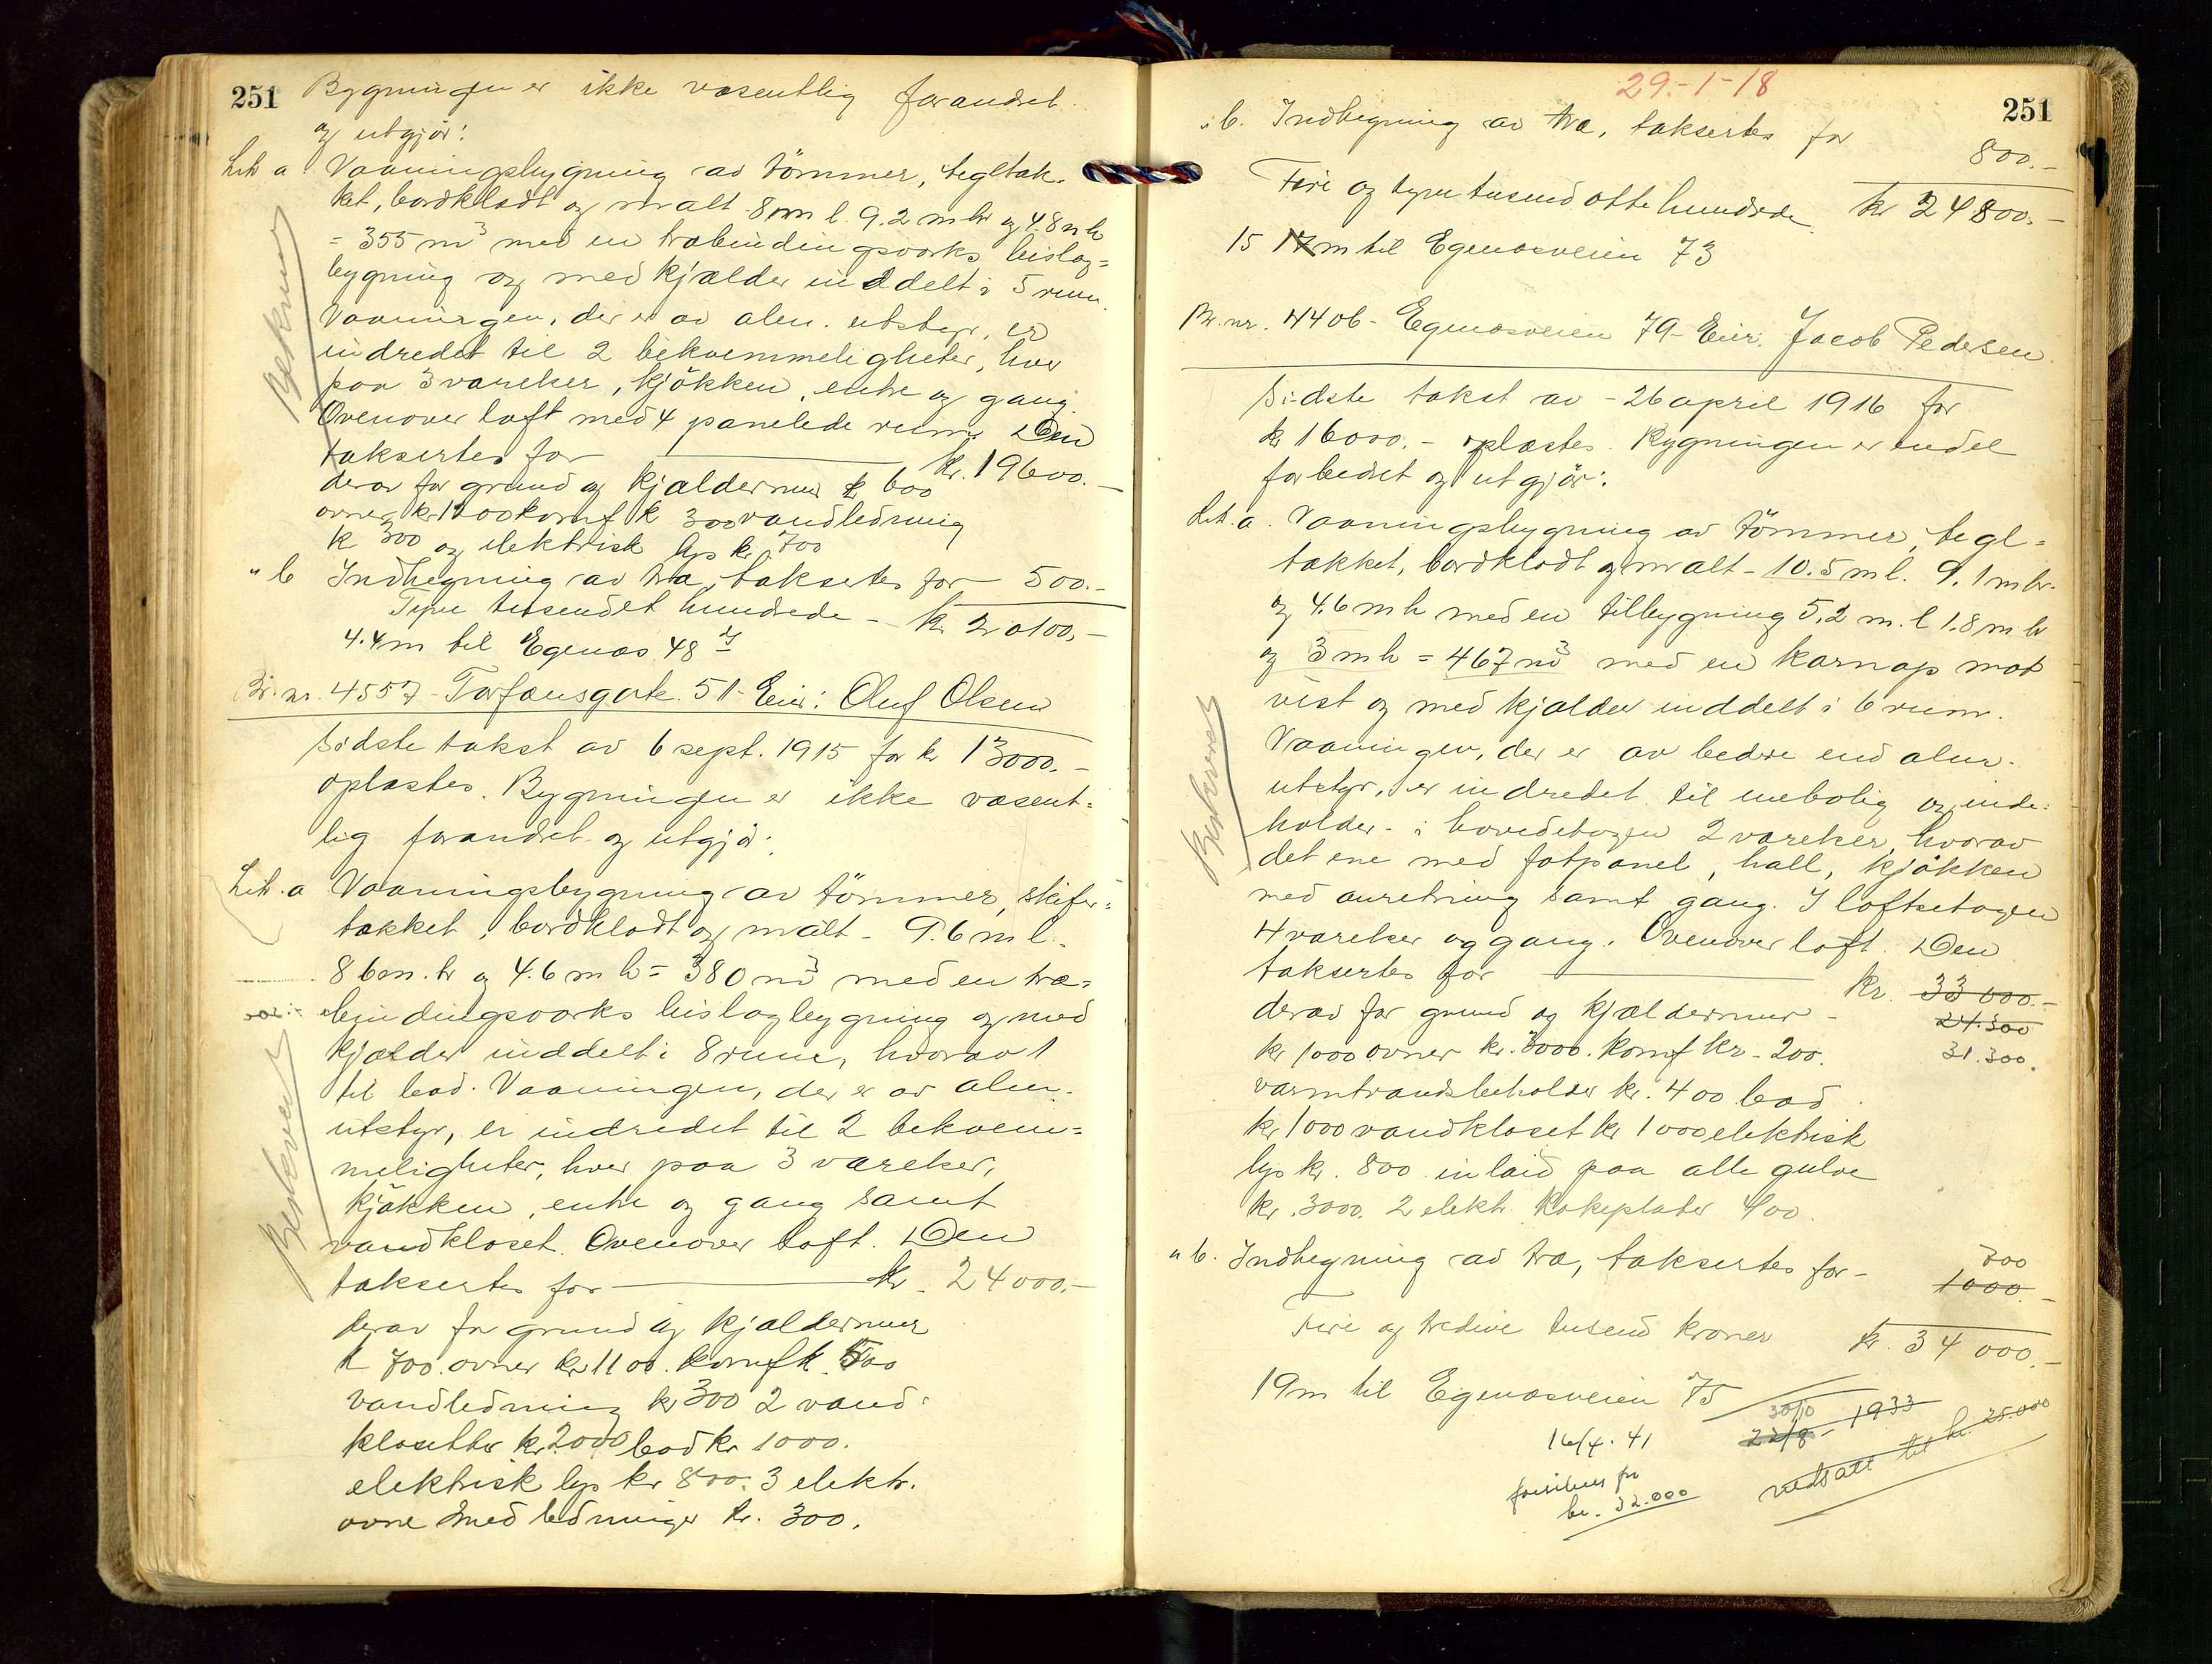 251
Bygningen er ikke væsentlig forandret
og utgjør:
Lit. a Vaaningsbygning av tömmer, tegltak-
ket, bordklædt og malt 8 m l. 9.2 m br og 4.8 m h
= 355 m³ med en træbindingsværks bislag=
bygning og med kjælder inddelt i 5 rum
Vaaningen, der er av alm. utstyr, er
indredet til 2 bekvemmeligheter, hver
paa 3 værelser, kjökken, entre og gang.
Ovenover loft med 4 panelede rum. Den
taksertes for kr. 19600.-
derav for grund og kjældermur kr 600
ovner kr 1200 komf k 300 vandledning
k 300 og elektrisk lys kr 700
" b Indhegning av træ, taksertes for 500.-
Tyve tusend et hundrede - kr. 20100.-
4.4 m til Egenæs 48
Br. nr. 4557 - Torfæusgate. 51 - Eier: Oluf Olsen
Sidste takst av 6 sept. 1915 for kr 13000.-
oplæstes. Bygningen er ikke væsent=
lig forandret og utgjør:
Lit. a Vaaningsbygning av tömmer, skifer=
takket, bordklædt og malt - 9.6 m l.
8.6 m. br og 4.6 m h = 380 m³ med en træ=
bindingsværks bislagbygning og med
kjælder inddelt i 8 rum, hvorav 1
til bad. Vaaningen, der er av alm.
utstyr, er indredet til 2 bekvem=
meligheter, hver paa 3 værelser,
kjökken, entre og gang samt
vandkloset. Ovenover loft. Den
taksertes for kr. 24000.-
derav for grund og kjældermur
k 700. ovner kr 1100. komf k 500
vandledning kr 300 2 vand=
klosetter kr. 2000 bad kr 1000.
elektrisk lys kr 800. 3 elektr.
ovne med ledninger kr. 300.
29-1-18
251
" b. Indhegning av træ, taksertes for 800.-
Fire og tyve tusend otte hundrede kr 24800.-
15 17 m til Egenæsveien 73
Br. nr. 4406 - Egenæsveien 79 - Eier: Jacob Pedersen
Sidste takst av - 26 april 1916 for
kr 16000.- oplæstes. Bygningen er endel
forbedret og utgjør:
Lit. a. Vaaningsbygning av tömmer, tegl=
takket, bordklædt og malt - 10.5 m l. 9.1 m br.
og 4.6 m h med en tilbygning 5.2 m. l 1.8 m br
og 3 m h = 467 m³ med en karnap mot
vest og med kjælder inddelt i 6 rum.
Vaaningen, der er av bedre end alm.
utstyr, er indredet til enebolig og inde=
holder i hovedetagen 2 værelser, hvorav
det ene med fotpanel, hall, kjökken
med anretning samt gang. I loftsetagen
4 værelser og gang. Ovenover loft. Den
taksertes for kr. 33000.-
24.300
31.300.
derav for grund og kjældermur -
kr 1000 ovner kr. 3000. komf kr. 200.
varmtvandsbeholder kr. 400 bad
kr 1000 vandkloset kr 1000 elektrisk
lys kr. 800. inlaid paa alle gulve
kr. 3000. 2 elektr. kokeplater 400.
" b. Indhegning av træ, taksertes for - 700
1000.-
Fire og tredive tusend kroner kr. 34000.-
19 m til Egenæsveien 75
30/10
22/8 - 1933
nedsatt til kr. 25.000
16/4. 41
kr. 32.000